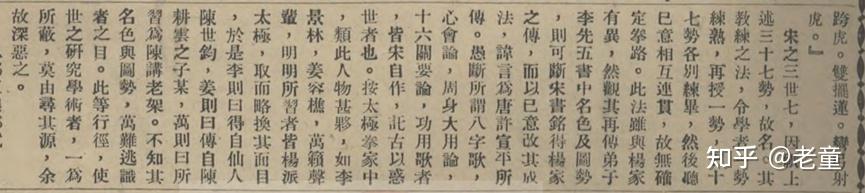 跨虎。雙擺蓮。彎弓射
虎。』
宋之三世七，因其上
述三十七勢，故名，其
教練之法，令學者單勢
練熟，再授一勢，三十
七勢各別練畢，然後聽
已意相互連貫，故無確
定拳路。此法雖與楊家
有異，然觀其再傳弟子
李先五書中名色及圖勢
，則可斷宋書銘得楊家
之傳，而以已意改其成
法，諱言為唐許宣平所
傳。愚斷所謂八字歌，
心會論，周身大用論，
十六關要論，功用歌者
，皆宋自作，託古以惑
世者也。按太極拳家中
，類此人物甚夥，如李
景林，姜容樵，萬籟聲
輩，明明所習者皆楊派
太極，取而略換其面目
，於是李則曰得自仙人
陳世鈞，姜則曰傳自陳
耕雲之子某，萬則曰所
習為陳講老架。不知其
名色與圖勢，萬難逃識
者之目。此等行徑，使
世之研究學術者，一為
所蔽，莫由尋其源，余
故深惡之。
知乎 @老童